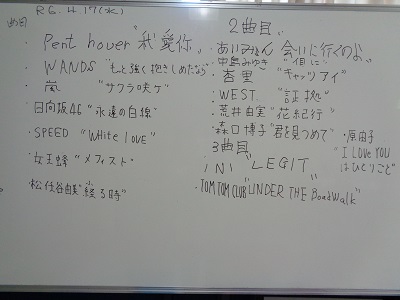 R6.4.17(水)
曲目
・Pent houer "我愛你"
・WANDS "もっと強く抱きしめたなら"
・嵐 "サクラ咲ケ"
・日向坂46 "永遠の白線"
・SPEED "White love"
・女王蜂 "メフィスト"
・松任谷由実 "経る時"
2曲目
・あいみょん 会いに行くのに"
・中島みゆき "倶に"
・杏里 "キャッツアイ"
・WEST. "証拠"
・荒井由実 "花紀行"
・森口博子 "君を見つめて"
・原由子
"I LOVE YOU
はひとりごと"
3曲目
・INI "LEGIT"
・TOM TOM CLUB "UNDER THE BoadWalk"